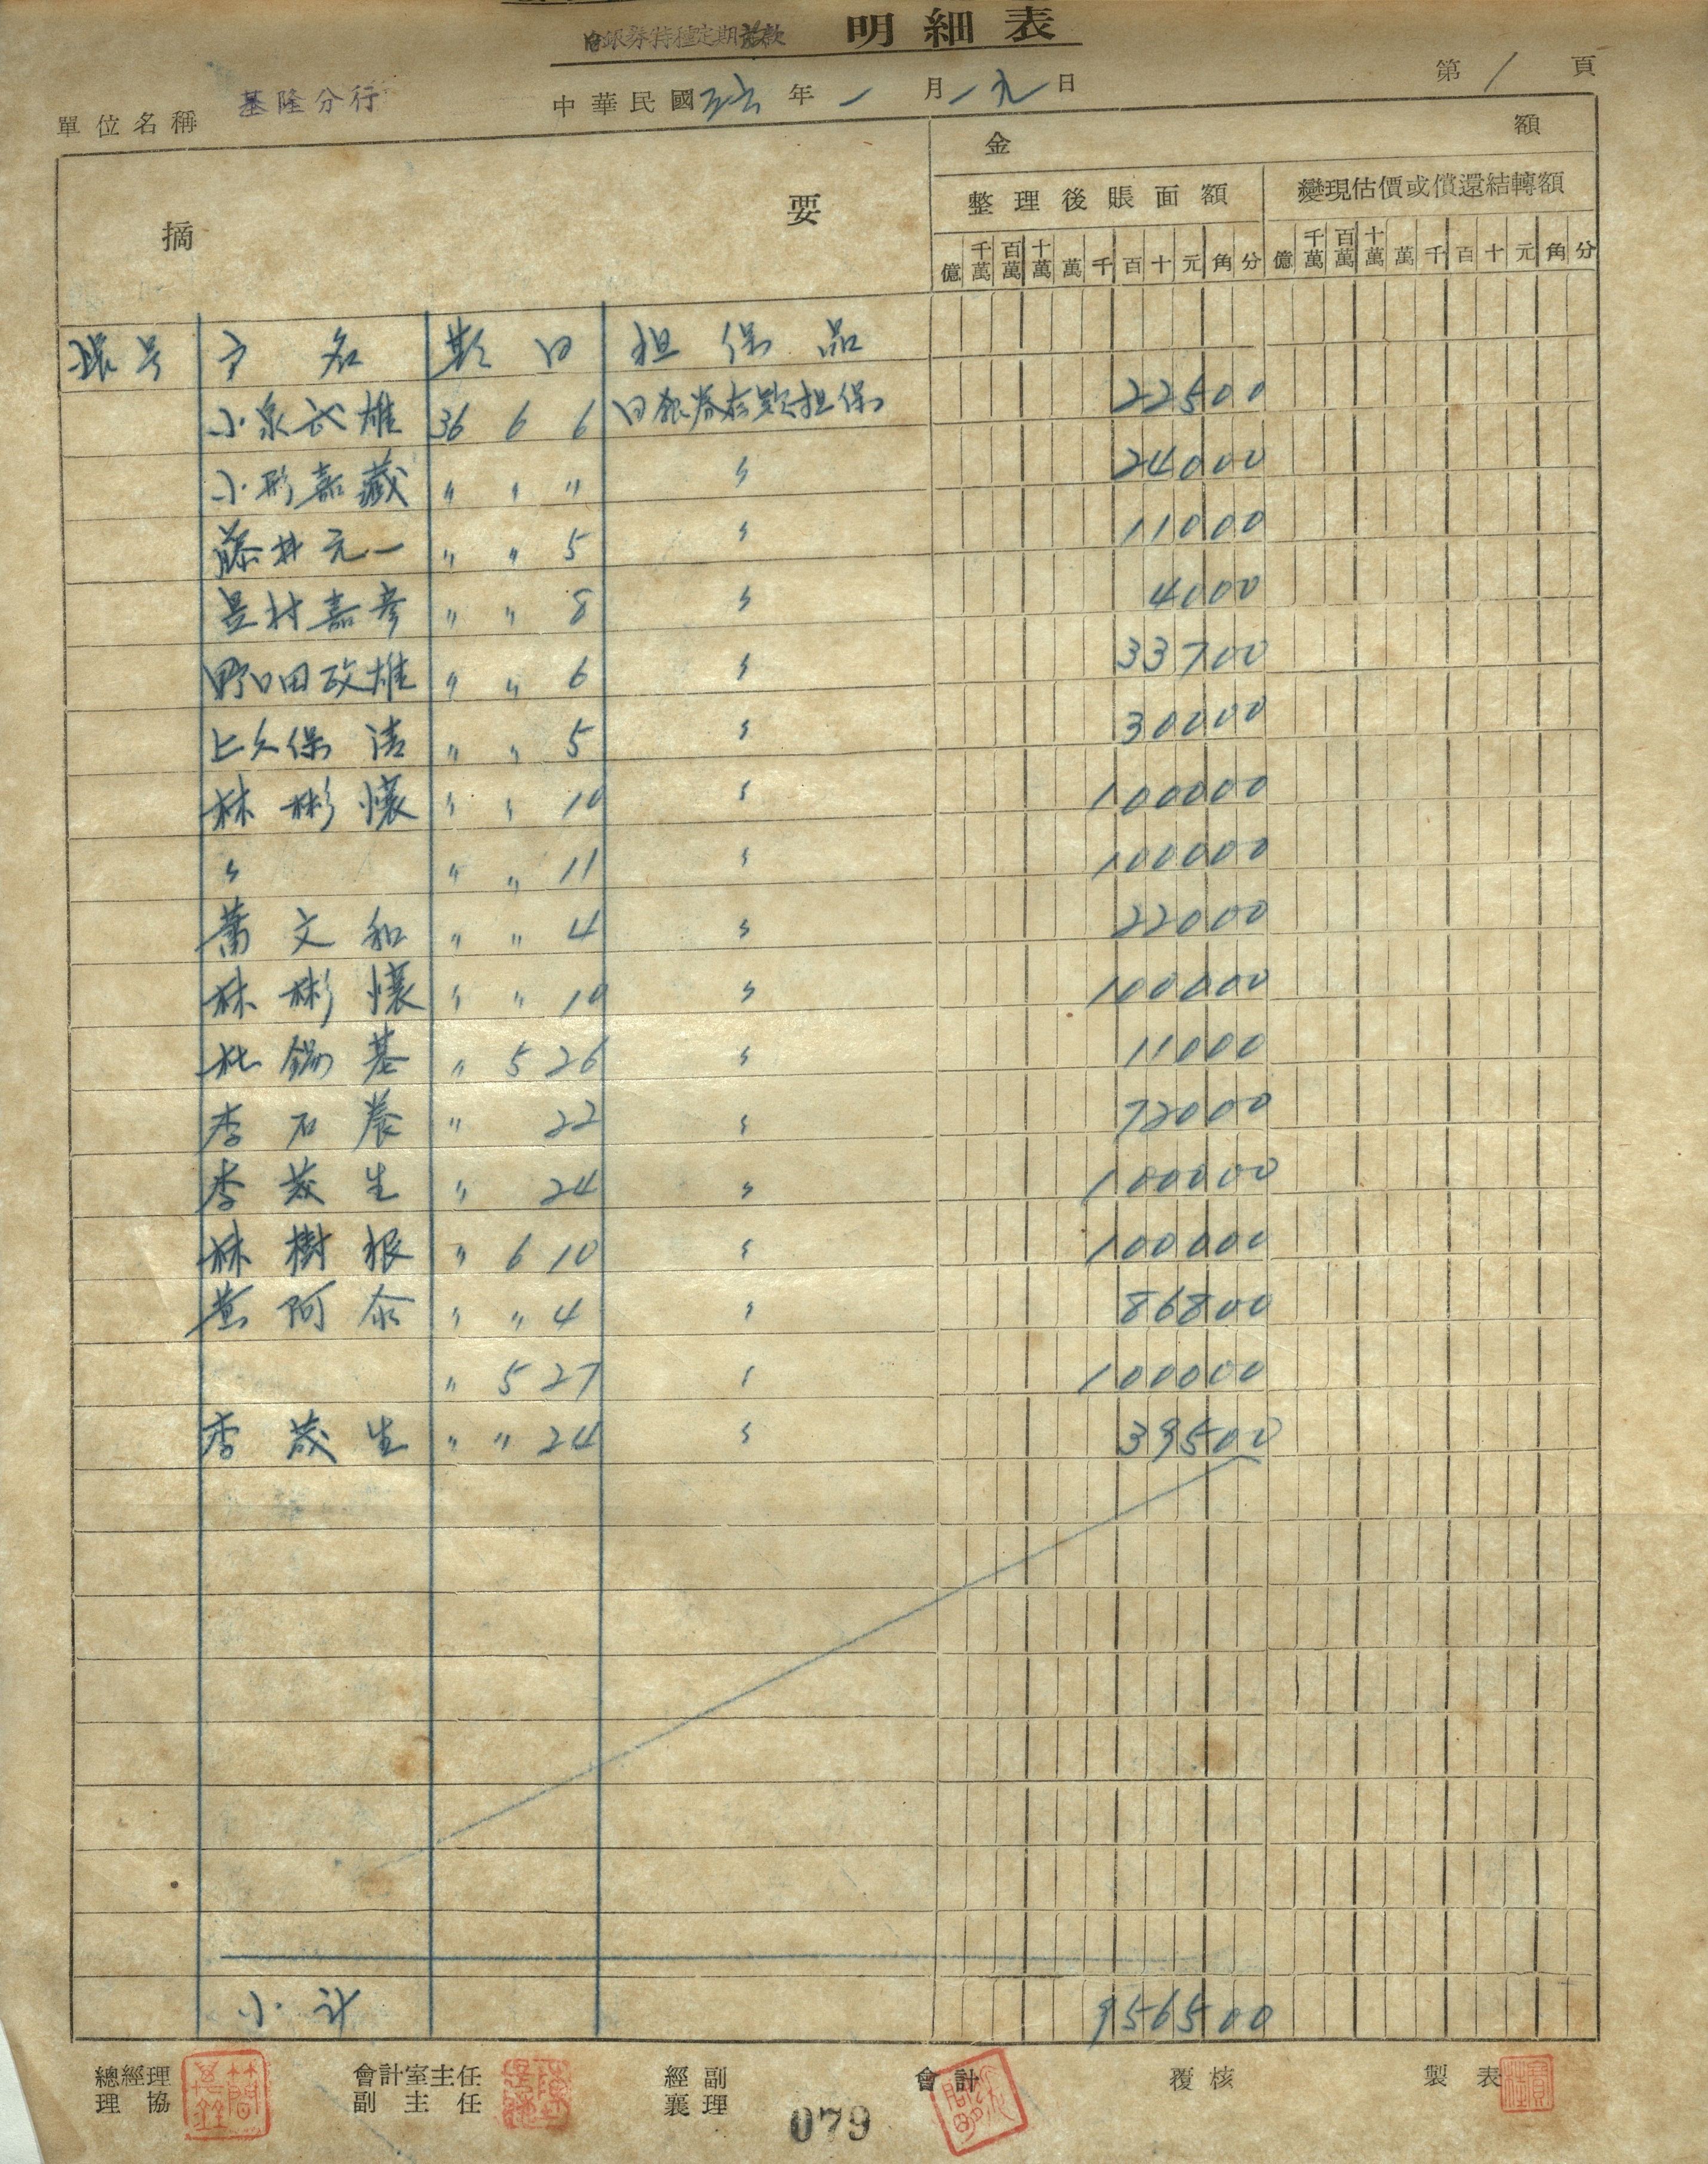 日銀券特種定期放款 明細表
單位名稱 基隆分行 中華民國 年一月一九日 第1頁
摘要 金額
整理後賬面額 變現估價或償還結轉額
億 千萬 百萬 十萬 萬 千 百 十 元 角 分 億 千萬 百萬 十萬 萬 千 百 十 元 角 分
號 户名 期日 担保品
小泉武雄 36 6 6 日銀券存款担保 22500
小形嘉藏 〃 〃 〃 〃 24000
藤井元一 〃 〃 5 〃 11000
村嘉彦 〃 〃 8 〃 4000
野口田政雄 〃 〃 6 〃 33700
上久保清 〃 〃 5 〃 30000
林彬懷 〃 〃 10 〃 100000
〃 〃 〃 11 〃 100000
蕭文和 〃 〃 4 〃 22000
林彬懷 〃 〃 10 〃 100000
杜錫基 〃 5 26 〃 11000
李石養 〃 22 〃 72000
李茂生 〃 24 〃 100000
林樹根 〃 6 10 〃 100000
黃阿泰 〃 〃 4 〃 86800
〃 5 27 〃 100000
李茂生 〃 〃 24 〃 39500
小計 956500
總經理 會計室主任 經副 會計 覆核 製表
協理 副主任 襄理
079